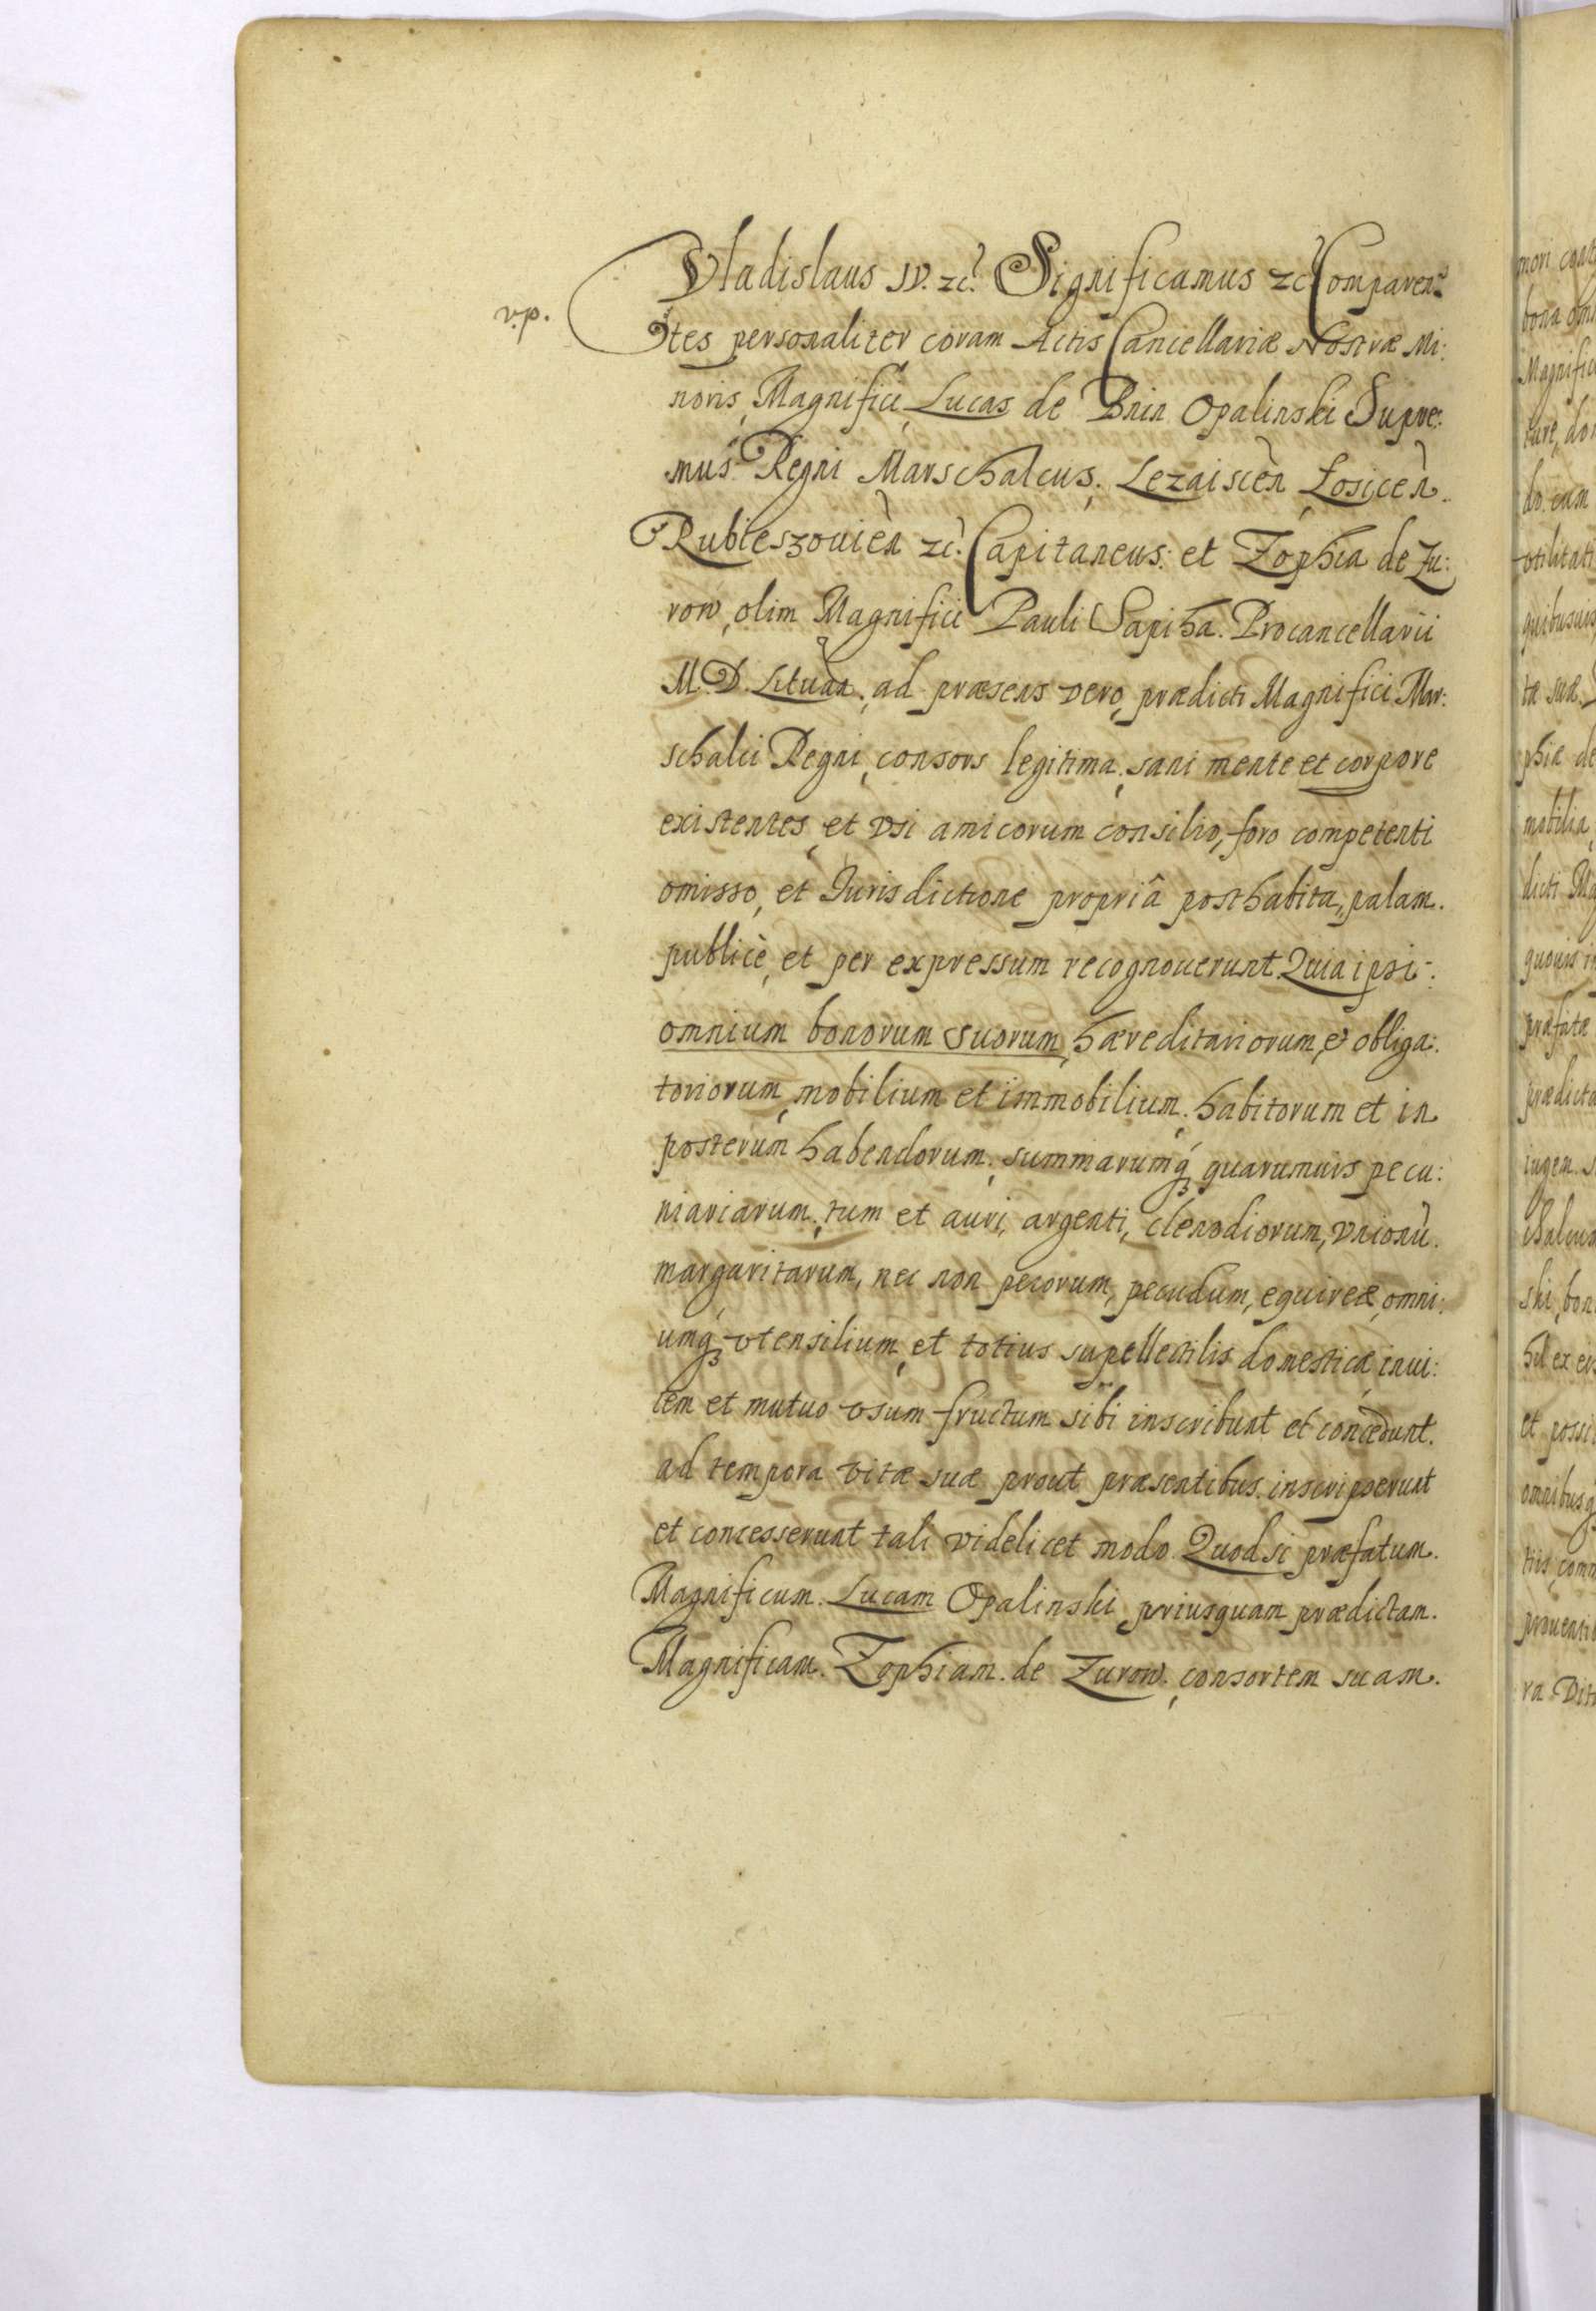 Vladislaus IV. zc. Significamus zc. Comparen-
v.p.
tes personaliter coram Actis Cancellariæ Nostræ Mi:
noris, Magnifici, Lucas de Bnin Opalinski Supre:
mus Regni Marschalcus, Lezaiscèn Łosicèn.
Rubieszouièn zc. Capitaneus: et Zophia de Zu:
row, olim Magnifici Pauli Sapiha. Procancellarii
M. D. Lituàn, ad præsens vero, prædicti Magnifici Mar:
schalci Regni, consors legitima, sani mente et corpore
existentes, et vsi amicorum consilio, foro competenti
omisso, et Jurisdictione propriâ posthabita, palam.
publicè, et per expressum recognouerunt. Quia ipsi:
omnium bonorum suorum, hæreditariorum, et obliga:
toriorum, mobilium et immobilium, habitorum et in
posterum habendorum, summarumq́ quarumuis pecu:
niariarum, tum et auri, argenti, clenodiorum, vnionù.
margaritarum, nec non pecorum, pecudum, equireæ, omni:
umq vtensilium, et totius supellectilis domesticæ, inui:
cem et mutuo vsum fructum sibi inscribunt et concedunt.
ad tempora vitæ suæ prout præsentibus inscripserunt
et concesserunt tali videlicet modo. Quod si præfatum.
Magnificum. Lucam Opalinski priusquam prædictam.
Magnificam. Zophiam. de Zurow. consortem suam.
mori
bona
Magnific
iure, do
do. cum
vtilitati
quibusuis
tæ suæ.
phia de
mobilia,
dicti Ma
quouis
præfatæ
prædicta
ski, bon
et possi
omnibusq